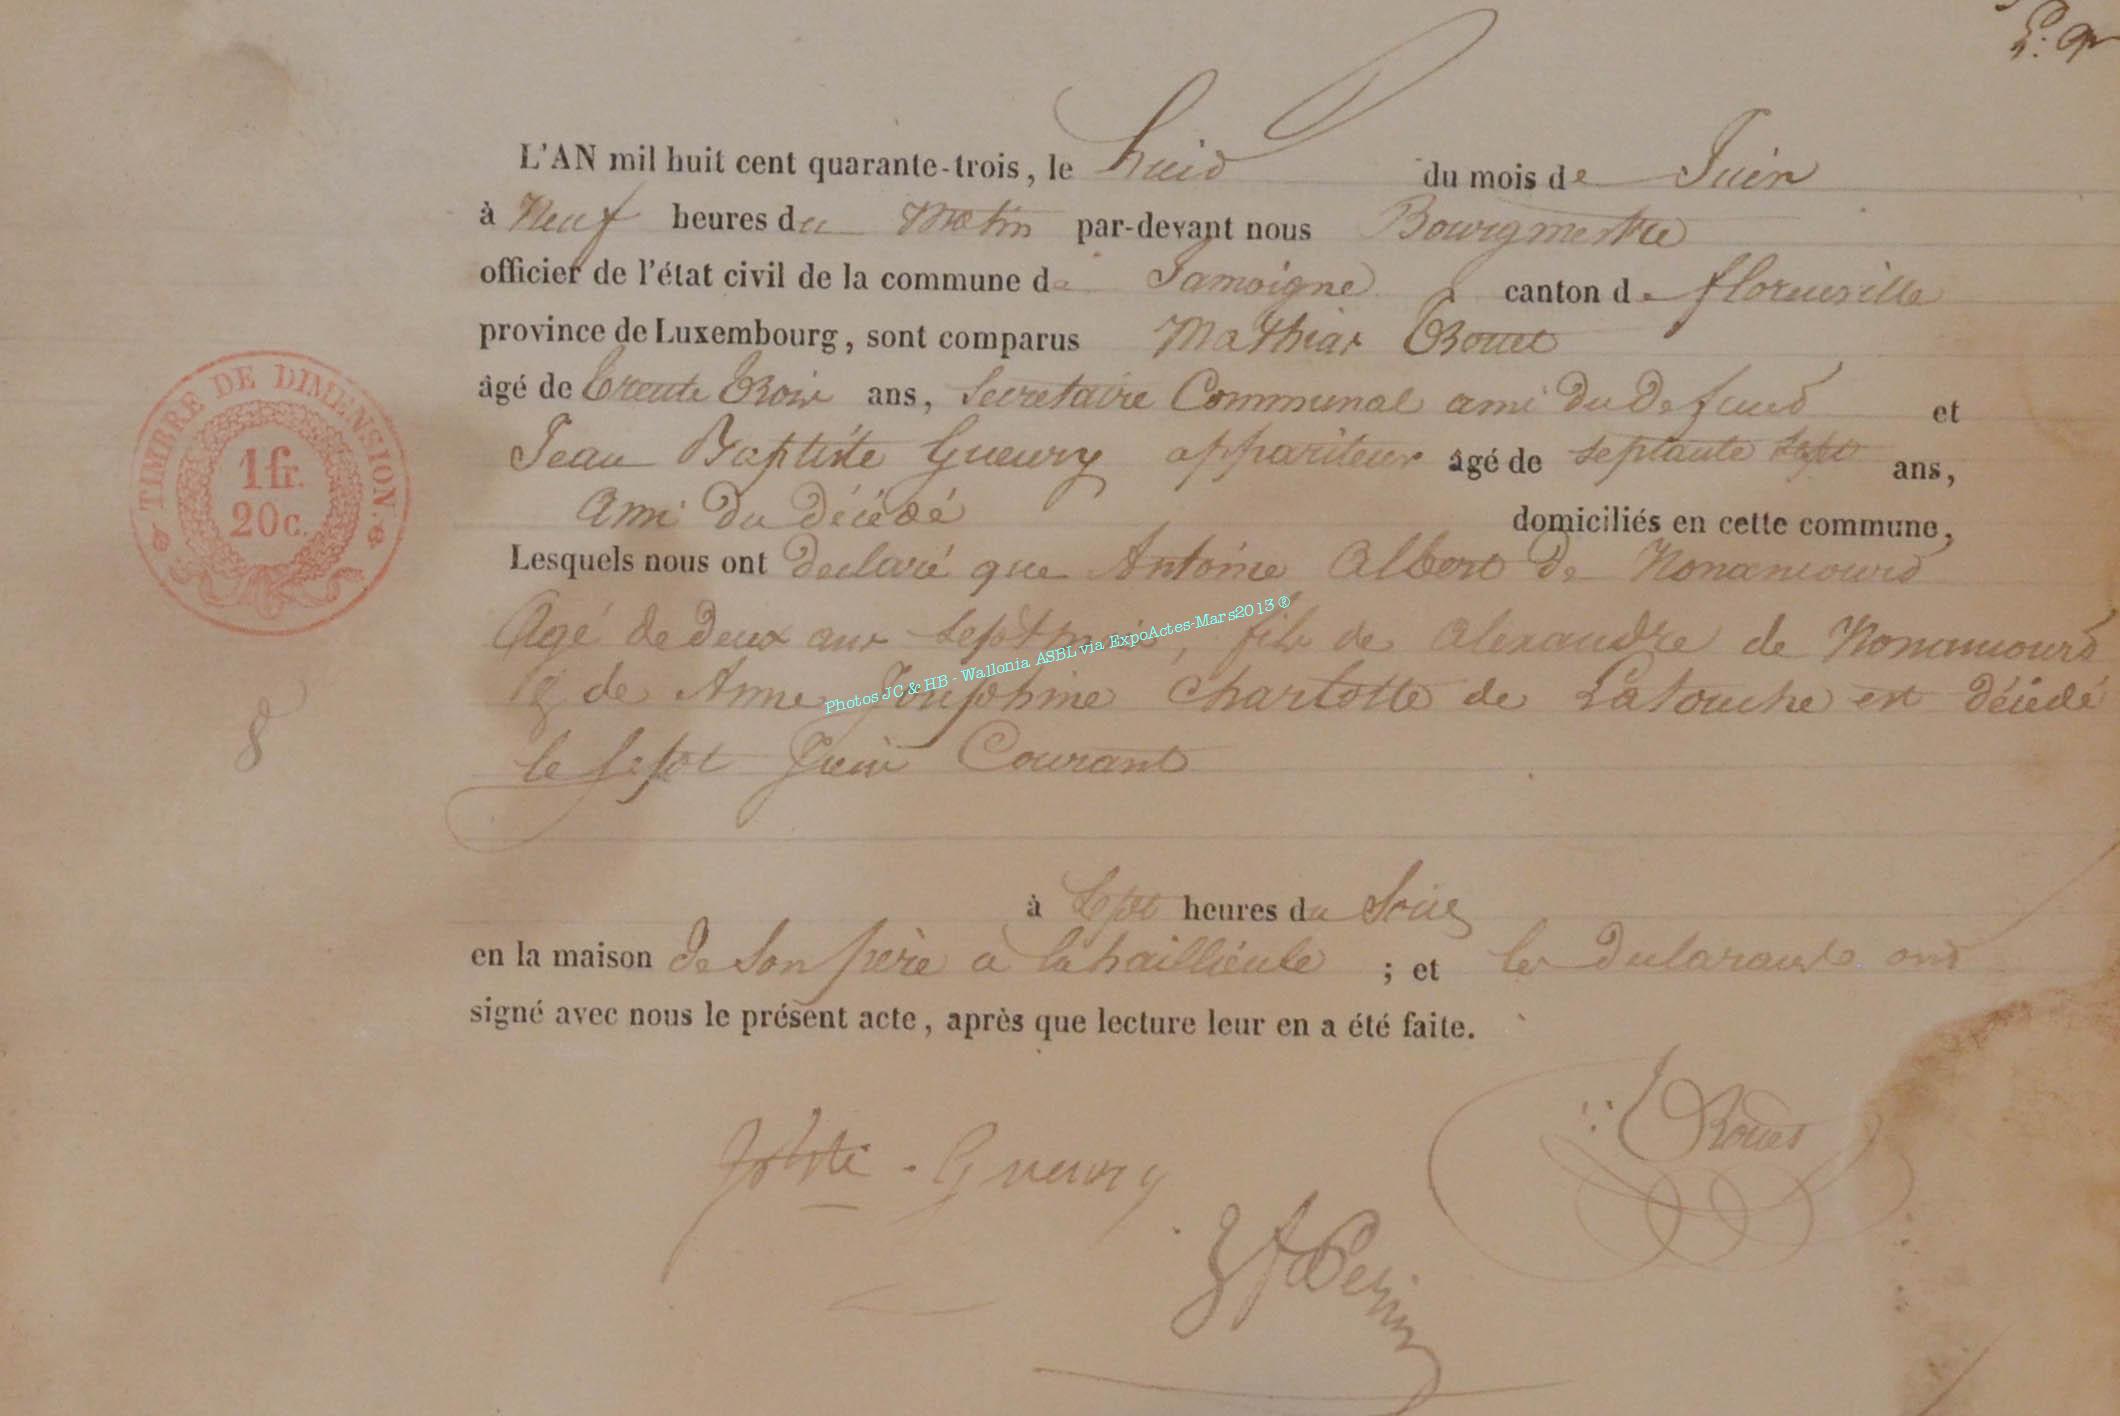 L'AN mil huit cent quarante-trois, le huid du mois de Juin
à Neuf heures du Matin par-devant nous Bourgmestre
officier de l'état civil de la commune de Jamoigne canton de florenville
province de Luxembourg, sont comparus Mathias Rouet
âgé de trente trois ans, Secretaire Communal ami du defund et
Jean Baptiste Gueury appariteur âgé de septante sept ans,
Ami du décédé domiciliés en cette commune,
Lesquels nous ont declaré que Antoine Albert de Nonancourd
Agé de deux ans sept mois, fils de Alexandre de Nonancourd
& de Anne Josephine Charlotte de Latouche est décédé
le sept Juin Courant
à Sept heures du Soir
en la maison de Son père a lahaillieule ; et les declarants ond
signé avec nous le présent acte, après que lecture leur en a été faite.
Rouet
Gueury
TIMBRE DE DIMENSION.
1 fr.
20 c.
8
Photos JC & HB - Wallonia ASBL via ExpoActes-Mars2013 ®